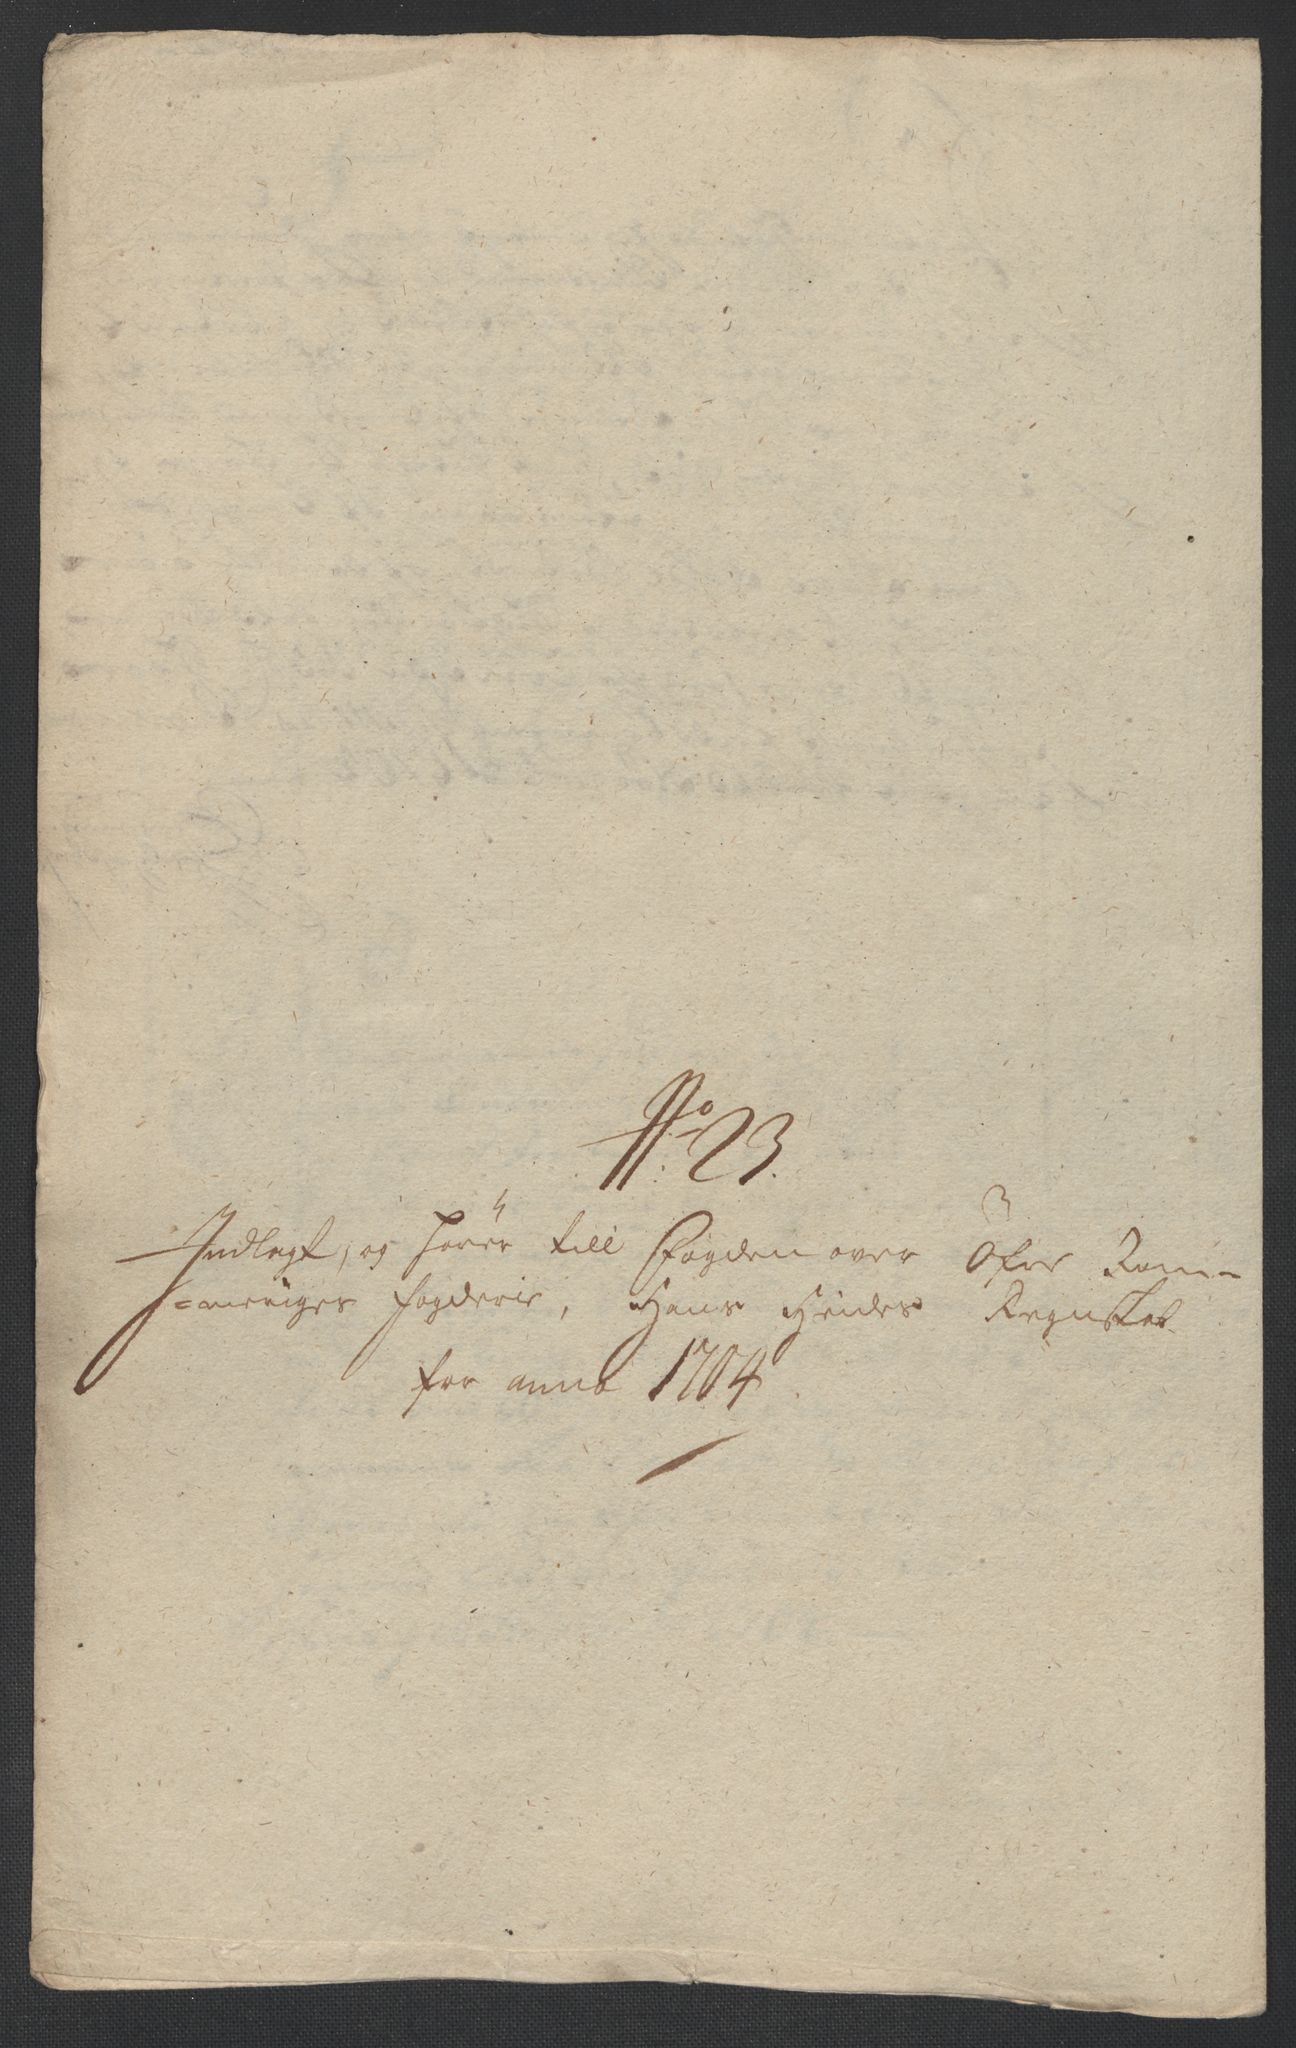 No: 23.
Indlagt, og hører till Fogden over Öfre Rom-
=meriges fogderie, Hans Heides Regnskab
for anno 1704